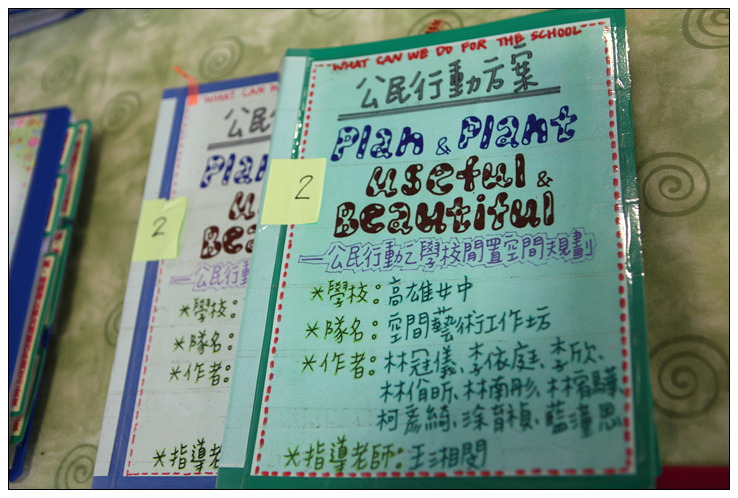 WHAT CAN WE DO FOR THE SCHOOL
公民行動方案
Plan & Plant
useful &
Beautiful
2
—公民行動之學校閒置空間規劃
*學校:高雄女中
*隊名:空間藝術工作坊
*作者:林冠儀、李依庭、李欣、
林俏昕、林南彤、林
柯彥綺、涂育禎、藍
*指導老師:王湘閔
WHAT CAN W
公民
Plan
u
Bea
2
—公民行動
*學校:
*隊名:
*作者:
*指導老